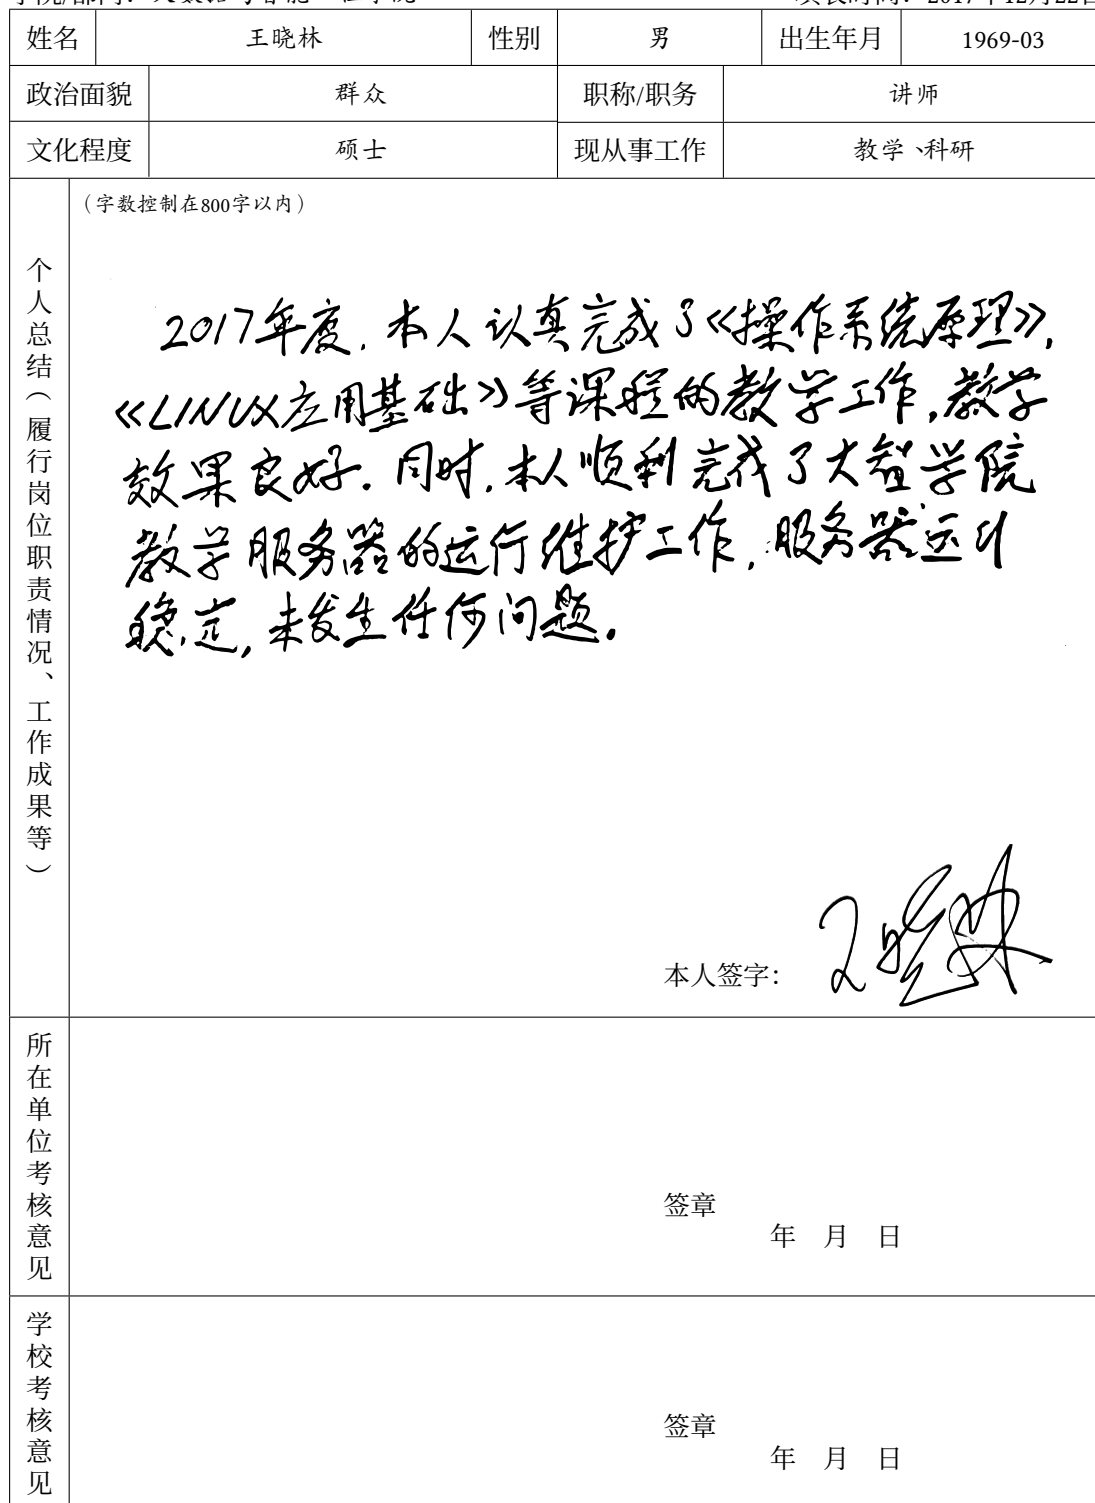 姓名 王晓林 性别 男 出生年月 1969-03
政治面貌 群众 职称/职务 讲师
文化程度 硕士 现从事工作 教学、科研
个人总结（履行岗位职责情况、工作成果等）
（字数控制在800字以内）
2017年度,本人认真完成了《操作系统原理》,
《LINUX应用基础》等课程的教学工作,教学
效果良好.同时,本人顺利完成了大智学院
教学服务器的运行维护工作,服务器运行
稳定,未发生任何问题.
本人签字： 王晓林
所在单位考核意见
签章
年 月 日
学校考核意见
签章
年 月 日